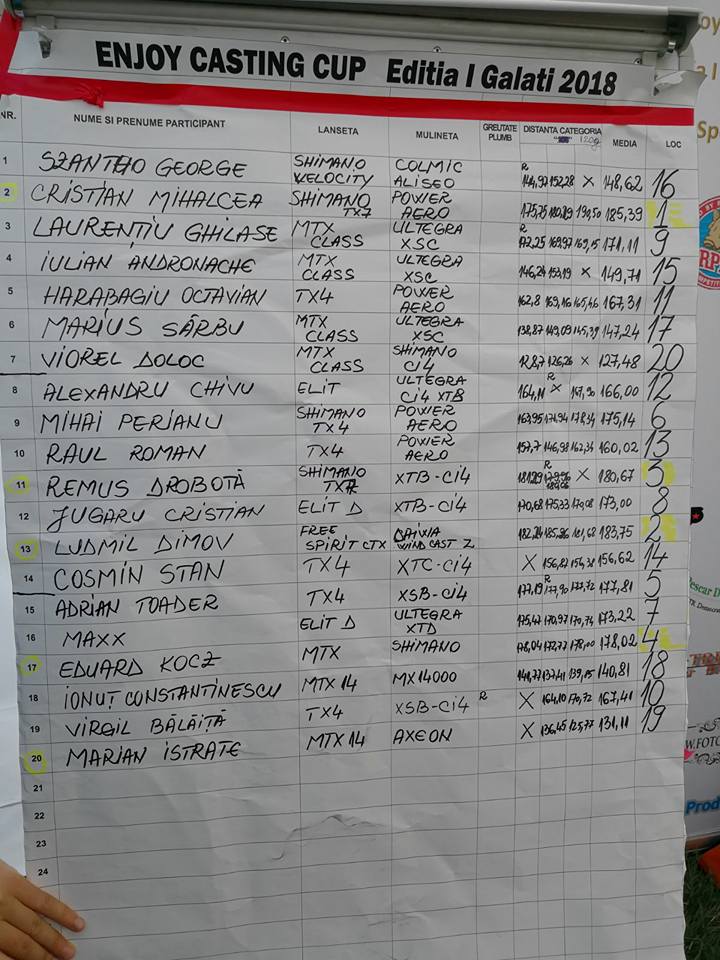 ENJOY CASTING CUP Editia I Galati 2018
NR. NUME SI PRENUME PARTICIPANT LANSETA MULINETA GREUTATE PLUMB DISTANTA CATEGORIA 120g MEDIA LOC
1 SZANTHO GEORGE SHIMANO VELOCITY COLMIC ALISEO R 144,97 152,28 X 148,62 16
2 CRISTIAN MIHALCEA SHIMANO TX7 POWER AERO 175,75 190,50 185,39 1
3 LAURENȚIU GHILASE MTX CLASS ULTEGRA XSC R 172,25 169,97 169,15 171,11 9
4 IULIAN ANDRONACHE MTX CLASS ULTEGRA XSC 146,24 153,19 X 149,71 15
5 HARABAGIU OCTAVIAN TX4 POWER AERO 162,8 169,16 165,46 167,31 11
6 MARIUS SÂRBU MTX CLASS ULTEGRA XSC 138,87 149,09 145,39 147,24 17
7 VIOREL DOLOC MTX CLASS SHIMANO Ci4 128,7 126,26 X 127,48 20
8 ALEXANDRU CHIVU ELIT ULTEGRA Ci4 XTB R 164,11 X 167,90 166,00 12
9 MIHAI PERIANU SHIMANO TX4 POWER AERO 163,95 171,94 178,34 175,14 6
10 RAUL ROMAN TX4 POWER AERO 157,7 146,98 162,34 160,02 13
11 REMUS DROBOTĂ SHIMANO TX7 XTB-Ci4 R 181,29 X 180,67 3
12 JUGARU CRISTIAN ELIT D XTB-Ci4 170,68 175,33 170,08 173,00 8
13 LUDMIL DIMOV FREE SPIRIT CTX DAIWA WIND CAST Z 182,24 185,26 181,68 183,75 2
14 COSMIN STAN TX4 XTC-Ci4 X 156,82 156,62 14
15 ADRIAN TOADER TX4 XSB-Ci4 R 177,19 177,90 177,72 177,81 5
16 MAXX ELIT D ULTEGRA XTD 175,47 170,97 170,74 173,22 7
17 EDUARD KOCZ MTX SHIMANO 178,04 172,77 178,00 178,02 4
18 IONUȚ CONSTANTINESCU MTX 14 MX14000 141,77 137,41 139,15 140,81 18
19 VIRGIL BĂLĂIȚĂ TX4 XSB-Ci4 R X 164,10 170,72 167,41 10
20 MARIAN ISTRATE MTX 14 AXEON X 136,45 125,77 131,11 19
21
22
23
24